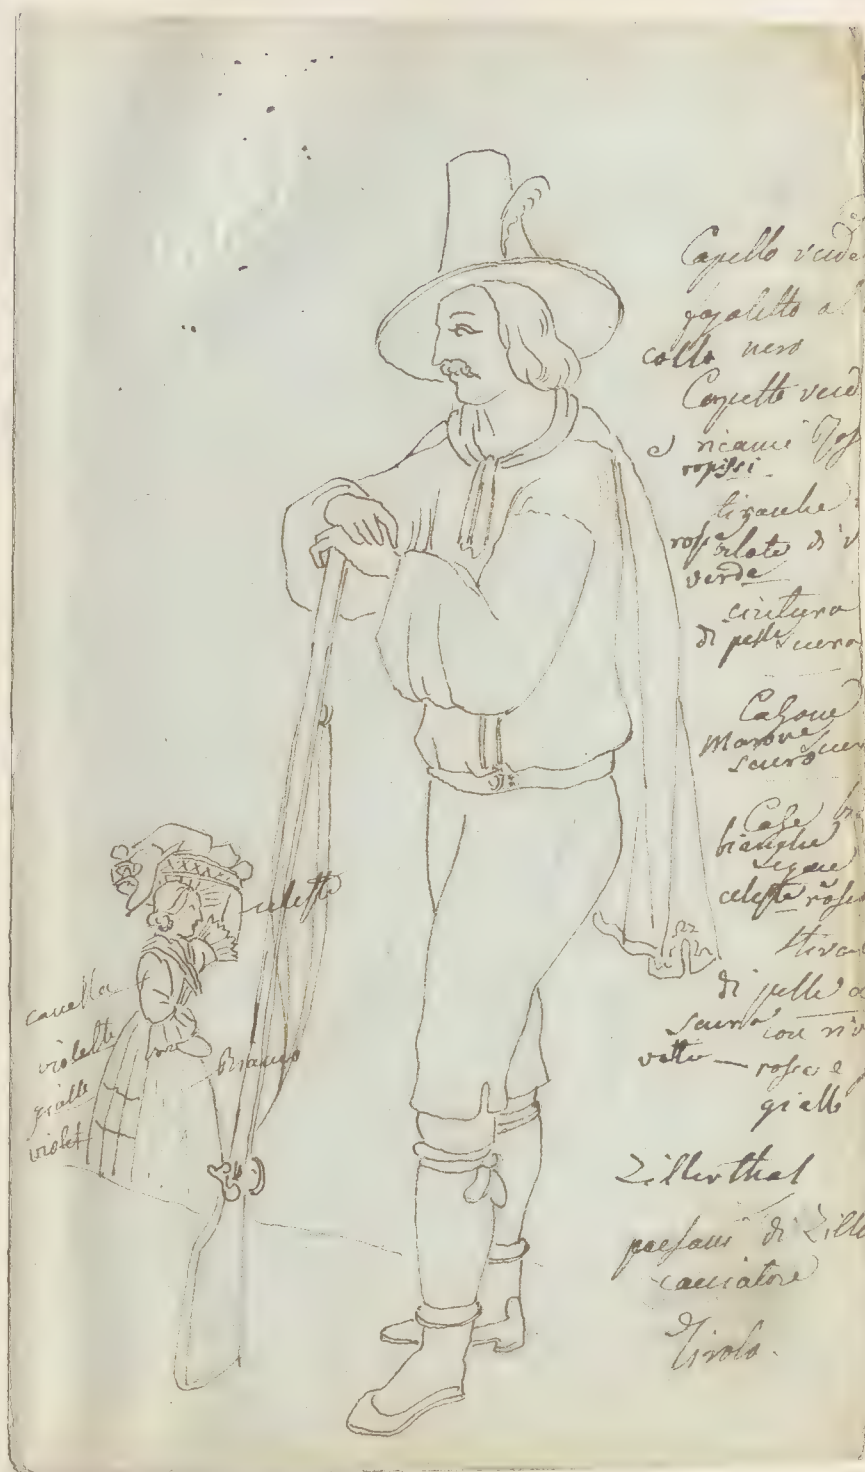 Capello verde
fazoletto al
collo nero
Corpette verd
e ricami
rossi
tiranche
rosse orlate di v
verde
cintura
di pelle scura
Calzone
Marone
scuro
Calze bi
bianche
ligace
celeste rosse
Stiva
di pelle
scura con riv
volte rossa e
giallo
Zillerthal
paesani di Zille
cacciatore
Tirolo.
celeste
canella
violette
gialle
violet
Bianco